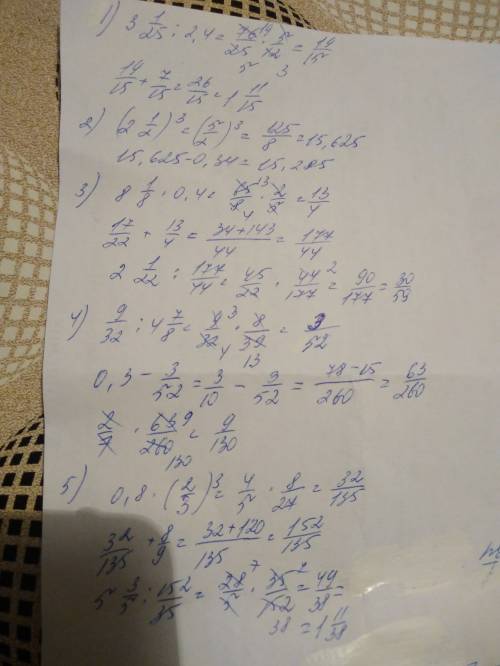 1) 3 1/25 : 2,4 = 76/25 19/5 · 5/12 3 = 19/15
19/15 + 7/15 = 26/15 = 1 11/15
2) (2 1/2)³ = (5/2)³ = 125/8 = 15,625
15,625 - 0,34 = 15,285
3) 8 1/8 · 0,4 = 65/8 13/4 · 2/5 = 13/4
17/22 + 13/4 = 34+143/44 = 177/44
2 1/22 : 177/44 = 45/22 · 44/177 2 = 90/177 = 30/59
4) 9/32 : 4 7/8 = 9/32 3/4 · 8/39 13 = 3/52
0,3 - 3/52 = 3/10 - 3/52 = 78-15/260 = 63/260
2/7 · 63/260 9/130 = 9/130
5) 0,8 · (2/3)³ = 4/5 · 8/27 = 32/135
32/135 + 8/9 = 32+120/135 = 152/135
5 3/5 : 152/35 = 28/5 7 · 35/152 7 = 49/38 =
38 = 1 11/38